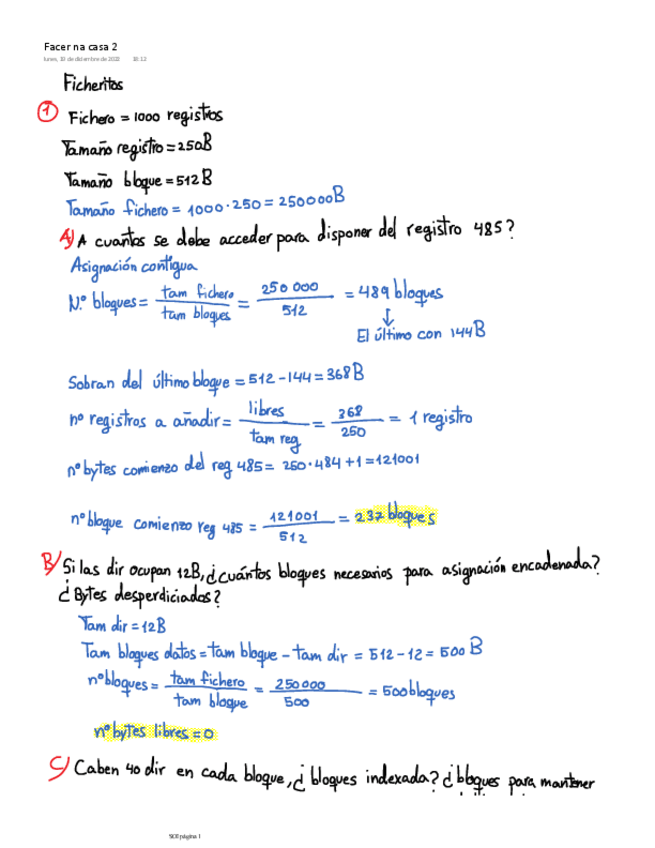 Facer na casa 2
lunes, 10 de diciembre de 2022 18:12
Ficheritos
1 Fichero = 1000 registros
Tamaño registro = 250B
Tamaño bloque = 512B
Tamaño fichero = 1000·250 = 250000B
A) A cuantos se debe acceder para disponer del registro 485?
Asignación contigua
N.º bloques = tam fichero / tam bloques = 250 000 / 512 = 489 bloques
↓
El último con 144B
Sobran del último bloque = 512 - 144 = 368B
nº registros a añadir = libres / tam reg = 368 / 250 = 1 registro
nº bytes comienzo del reg 485 = 250·484+1 = 121001
nº bloque comienzo reg 485 = 121001 / 512 = 237 bloques
B) Si las dir ocupan 12B, ¿cuántos bloques necesarios para asignación encadenada?
¿Bytes desperdiciados?
Tam dir = 12B
Tam bloques datos = tam bloque - tam dir = 512 - 12 = 500B
nº bloques = tam fichero / tam bloque = 250000 / 500 = 500 bloques
nº bytes libres = 0
C) Caben 40 dir en cada bloque, ¿bloques indexada? ¿bloques para mantener
SOI página 1